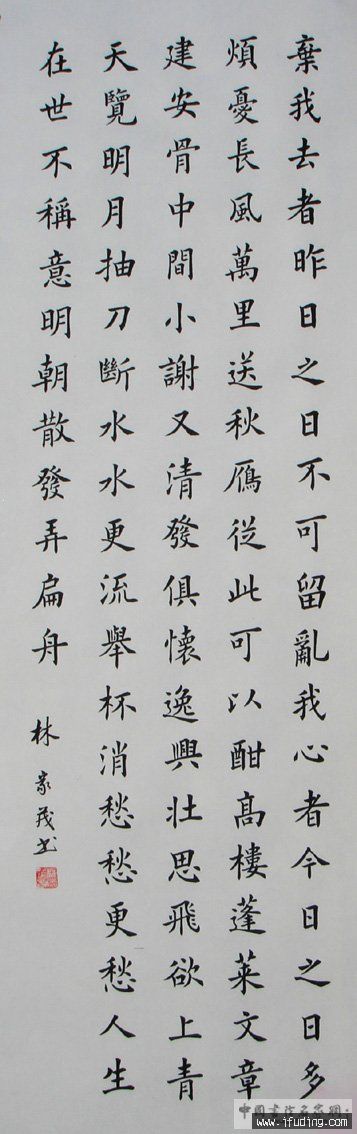 棄我去者昨日之日不可留亂我心者今日之日多
煩憂長風萬里送秋鴈從此可以酣高樓蓬萊文章
建安骨中間小謝又清發俱懷逸興壯思飛欲上青
天覽明月抽刀斷水水更流舉杯消愁愁更愁人生
在世不稱意明朝散發弄扁舟
林家茂书
www.ifuding.com